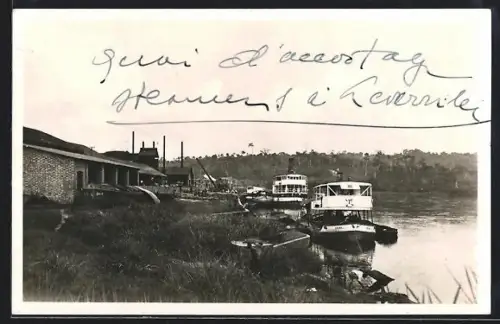 quai d'accostag
steamers à Leverville